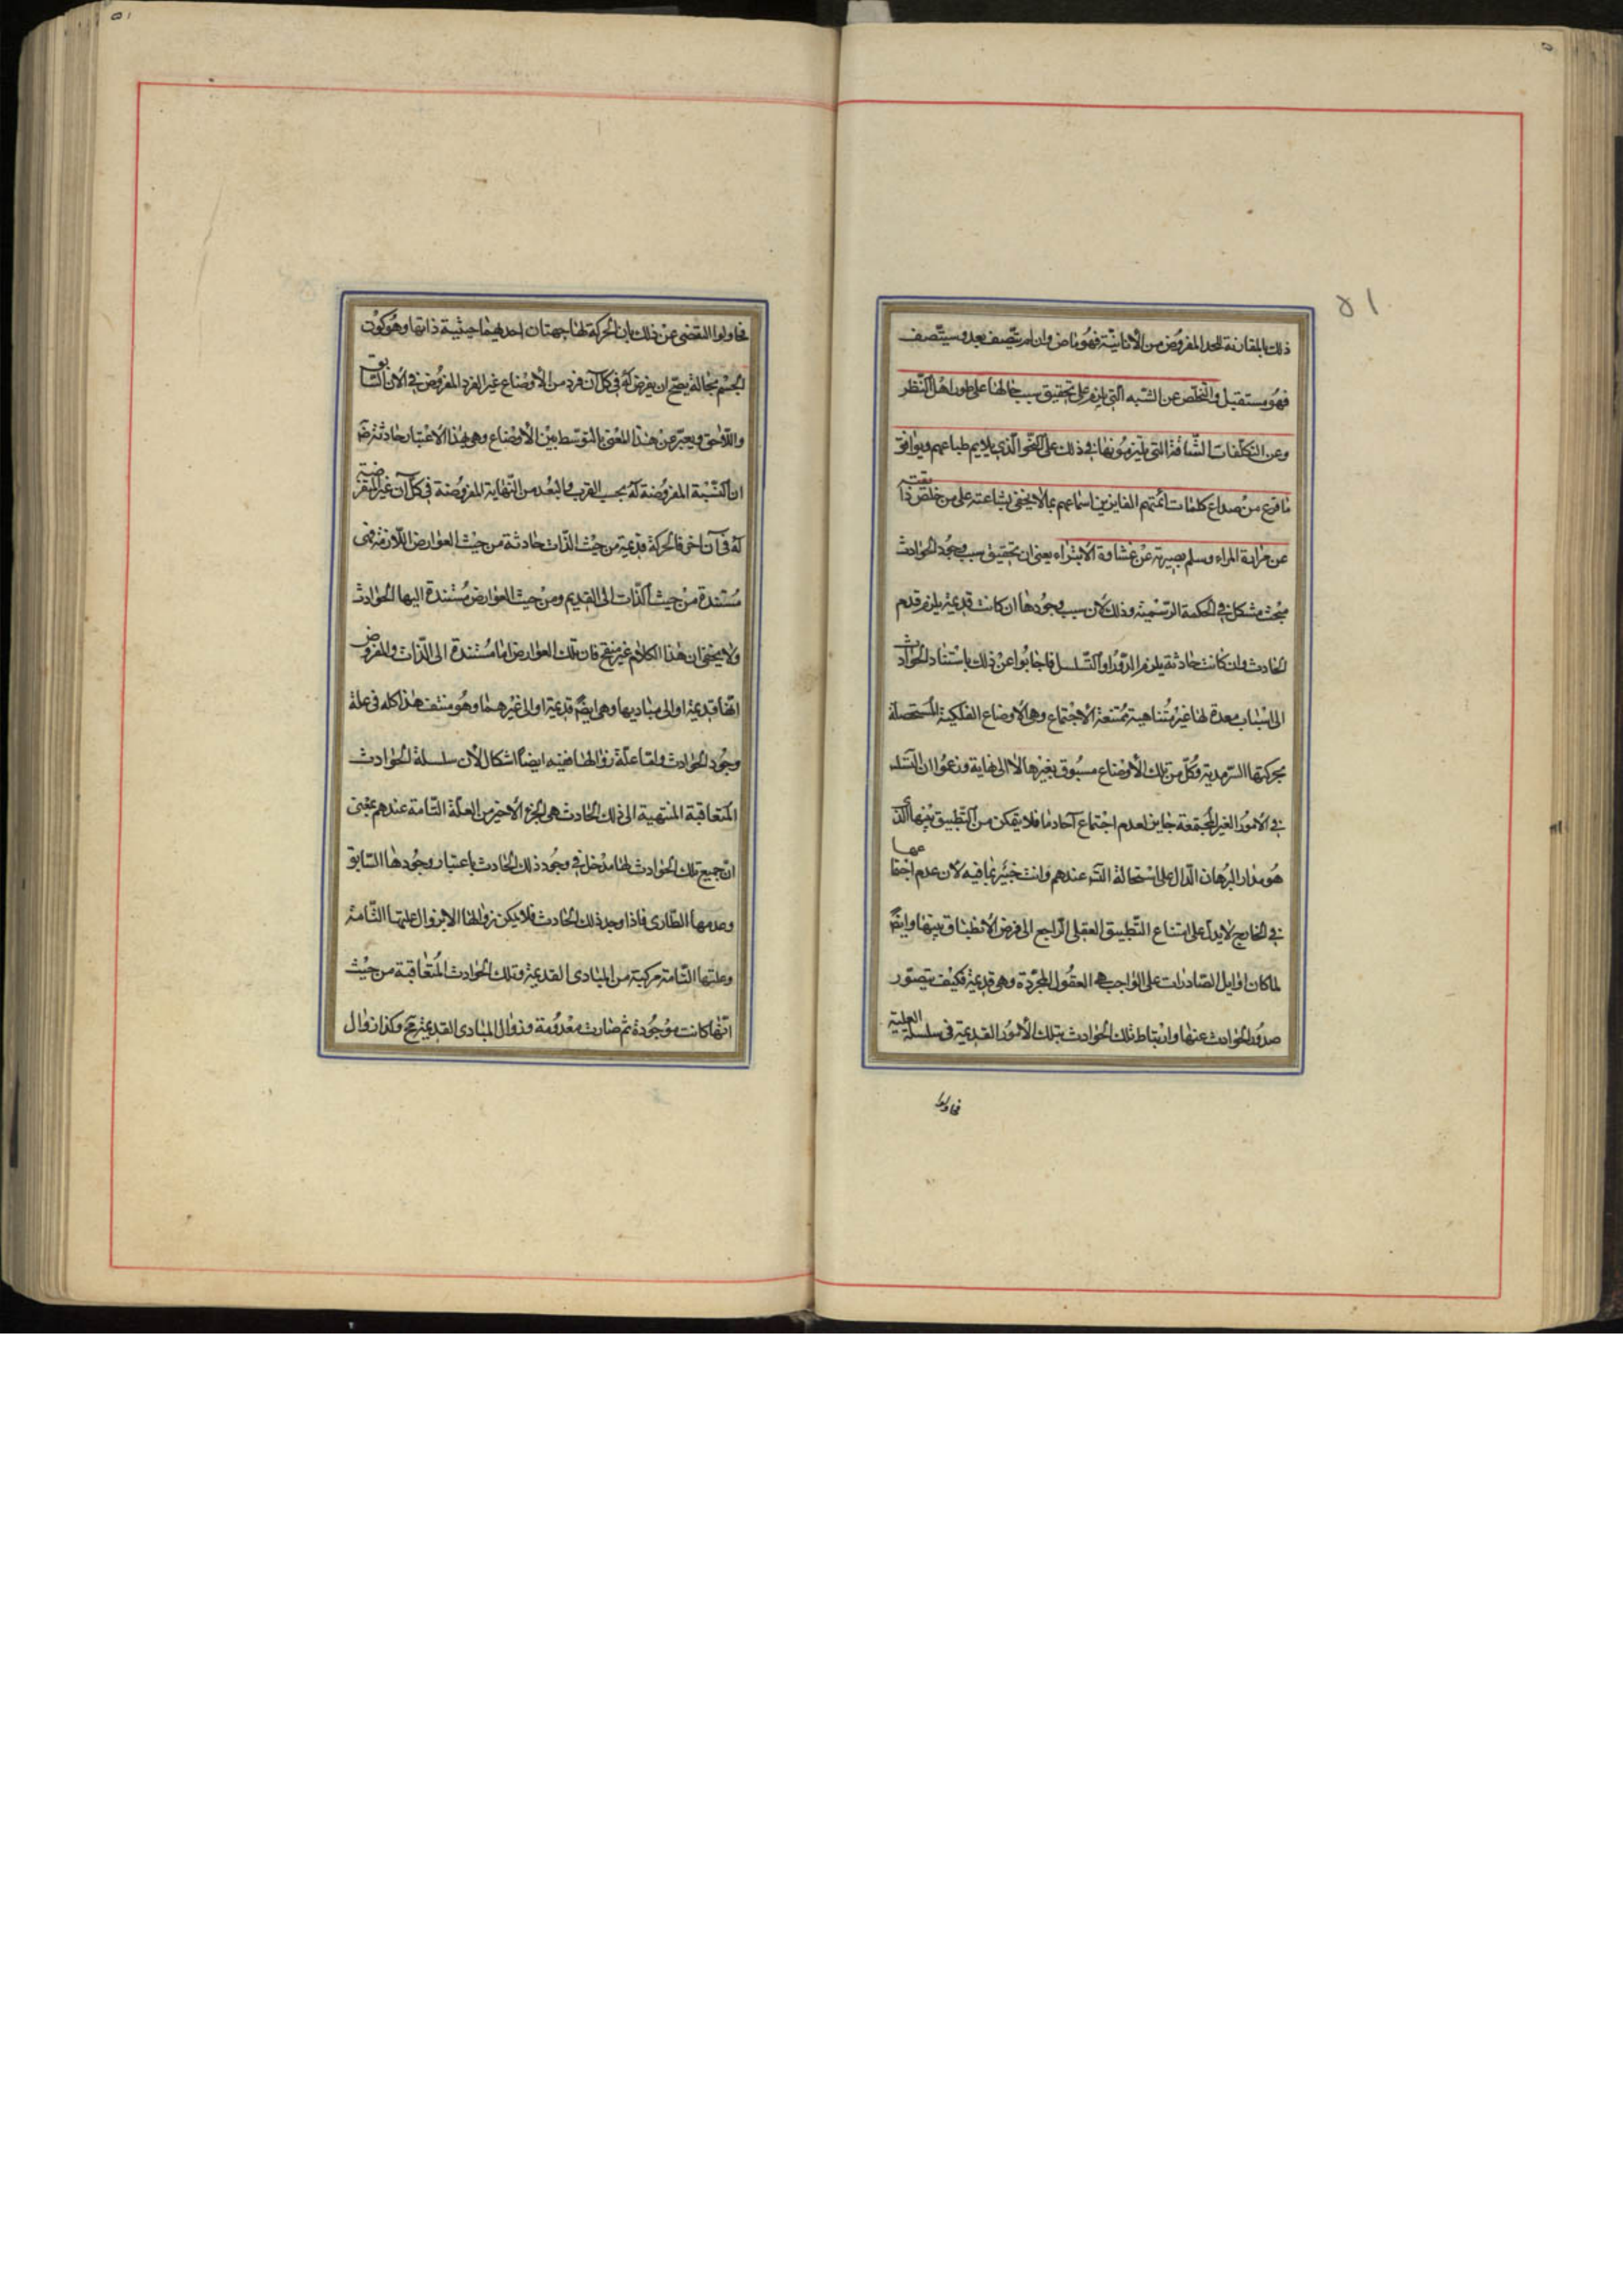 ٥١
ذلك بالمقارنة للحد المفروض من الأنانية فهو ماض وان لم يتصف بعد وسيتصف
فهو مستقبل والتخلص عن الشبه التي يلزم على تحقيق سبب خالها على طور اهل النظر
وعن التكلفات الشاقة التي يلتزمونها في ذلك على النحو الذي يلايم طباعهم ويوافق
ما قرع من صداع كلمات ائمتهم اسماعهم بما لا يخفى بشاعته على من خلص ذائقته
عن مرارة المراء وسلم بصيرته عن غشاوة الامتراء يعني ان تحقيق سبب وجود الحوادث
مبحث مشكل في الحكمة الرسمية وذلك لان سبب وجودها ان كانت قديمة يلزم قدم
الحادث وان كانت حادثة يلزم الدور او التسلسل فاجابوا عن ذلك باستناد الحوادث
الى اسباب معدة لها غير متناهية ممتنعة الاجتماع وهي الاوضاع الفلكية المستحصلة
بحركتها السرمدية وكل من تلك الاوضاع مسبوق بغيرها لا الى نهاية وزعموا ان التسلـ
في الامور الغير المجتمعة جايز لعدم اجتماع آحادها فلا يتمكن من التطبيق بينها الذي
هو مدار البرهان الدال على استحالة التسـ عندهم وانت خبير بما فيه لان عدم اجتماعها
في الخارج لا يدل على امتناع التطبيق العقلي الراجع الى فرض الانطباق بينها وايضً
لما كان اوايل الصادرات على الواجب هي العقول المجردة وهي قديمة فكيف يتصور
صدور الحوادث عنها وارتباط تلك الحوادث بتلك الأمور القديمة في سلسلة العلية
فحاولوا
فحاولوا التفصى عن ذلك بان الحركة لها جهتان احديهما حيثية ذاتها وهو كون
الجسم بحالة يصح ان يفرض له في كل آن فرد من الأوضاع غير الفرد المفروض في الآن السابق
واللاحق ويعبر عن هذا المعنى بالتوسط بين الأوضاع وهي بهذا الاعتبار حادثة ضـ
ان النسبة المفروضة له بحسب القرب والبعد من النهاية المفروضة في كل آن غير المفروضة
له في آن اخر فالحركة قديمة من حيث الذات حادثة من حيث العوارض اللازمة فهي
مستندة من حيث الذات الى القديم ومن حيث العوارض مستندة اليها الحوادث
ولا يخفى ان هذا الكلام غير منقح فان تلك العوارض اما مستندة الى الذات والمفروض
انها قديمة او الى مباديها وهي ايضً قديمة او الى غيرهما وهو منتف هذا كله في علة
وجود الحوادث واما علة زوالها ففيه ايضا اشكال لأن سلسلة الحوادث
المتعاقبة المنتهية الى ذلك الحادث هي الجزء الأخير من العلة التامة عندهم بمعنى
ان جميع تلك الحوادث لها مدخل في وجود ذلك الحادث باعتبار وجودها السابق
وعدمها الطارى فاذا وجد ذلك الحادث فلا يمكن زوالها الا بزوال علتها التامة
وعلتها التامة مركبة من المبادى القديمة وتلك الحوادث المتعاقبة من حيث
انها كانت موجودة ثم صارت معدومة وزوال المبادى القديمة مح وكذا زوال